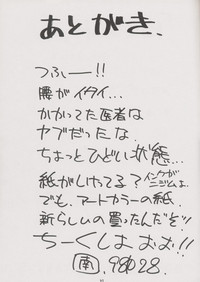 あとがき.
つふー!!
腰がイタイ...
かかってた医者は
ヤブだったな.
ちょっとひどい状態...
紙がしけてる?インクがニジムよ.
でも、アートカラーの紙.
新らしいの買ったんだぞ!!
ちーくしょおぉ!!
南. 28.